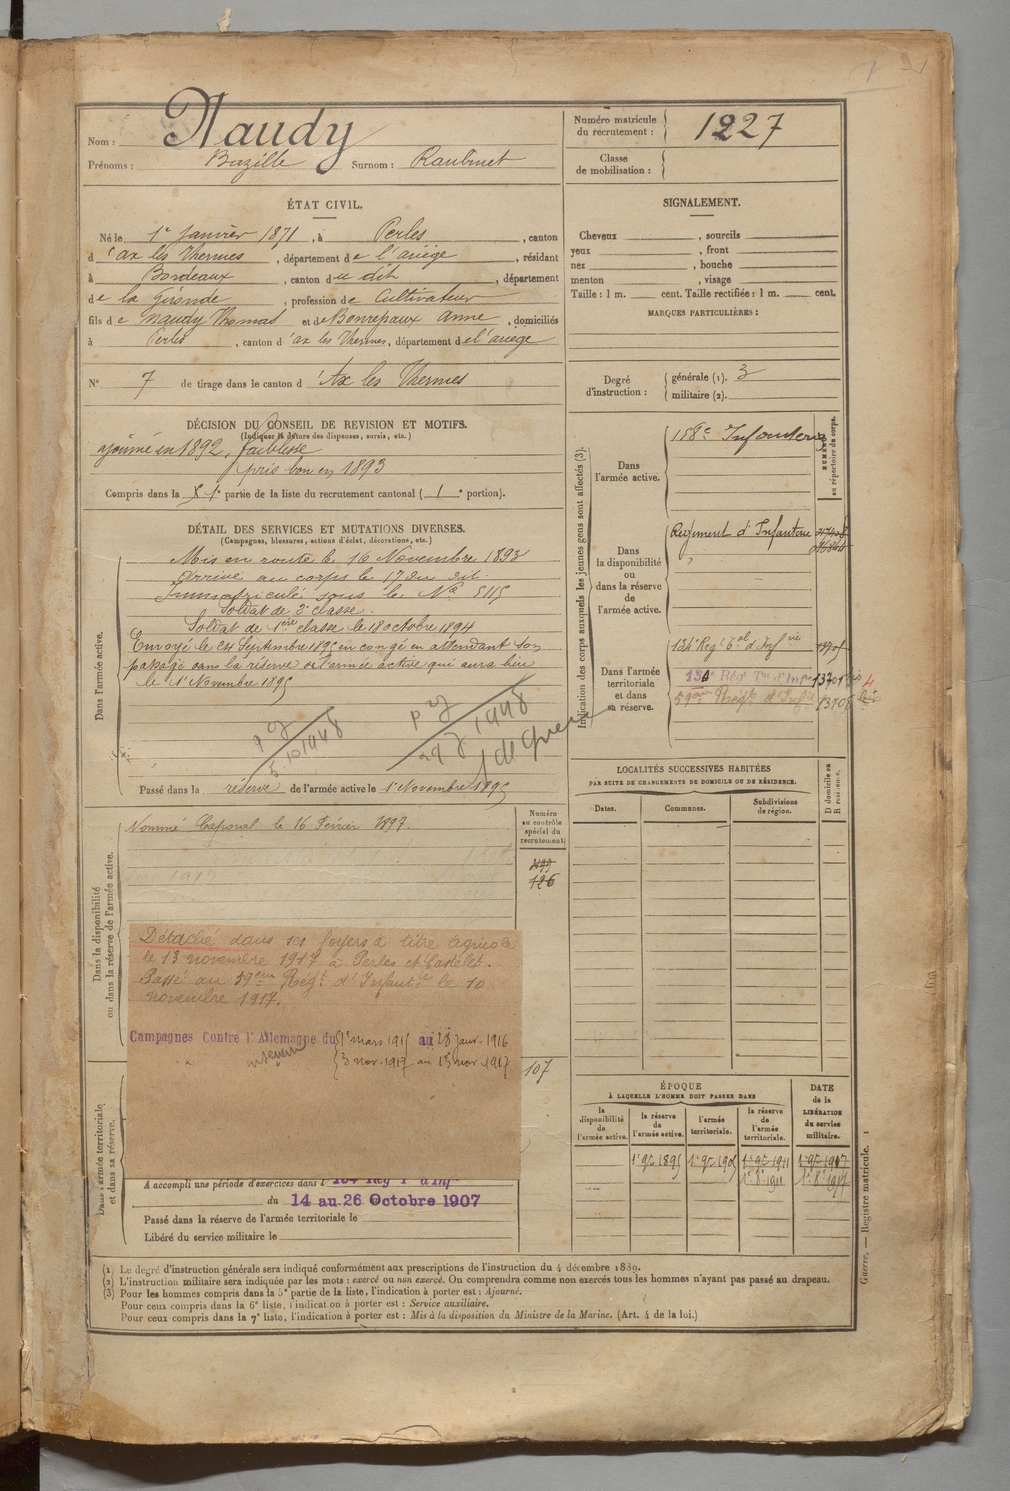 Nom : Naudy
Prénoms : Bazille Surnom : Raubinet
Numéro matricule du recrutement : 1227
Classe de mobilisation :
ÉTAT CIVIL.
Né le 1er Janvier 1871, à Perles, canton
d'ax les Thermes, département de l'ariège, résidant
à Bordeaux, canton du dit, département
de la gironde, profession de Cultivateur
fils de Naudy Thomas et de Bonrepaux Anne, domiciliés
à Perles, canton d'ax les Thermes, département de l'ariège
N° 7 de tirage dans le canton d'Ax les Thermes
SIGNALEMENT.
Cheveux , sourcils
yeux , front
nez , bouche
menton , visage
Taille : 1 m. cent. Taille rectifiée : 1 m. cent.
MARQUES PARTICULIÈRES :
Degré d'instruction : générale (1). 3
militaire (2).
DÉCISION DU CONSEIL DE REVISION ET MOTIFS.
(Indiquer la nature des dispenses, sursis, etc.)
ajourné en 1892, faiblesse
pris bon en 1893
Compris dans la 1e partie de la liste du recrutement cantonal ( 1e portion).
DÉTAIL DES SERVICES ET MUTATIONS DIVERSES.
(Campagnes, blessures, actions d'éclat, décorations, etc.)
Dans l'armée active.
Mis en route le 16 Novembre 1893
arrivé au corps le 17 du dit.
Immatriculé sous le No 5115
Soldat de 2e classe.
Soldat de 1ère classe le 18 octobre 1894
Envoyé le 24 Septembre 1895 en congé en attendant son
passage dans la réserve de l'armée active qui aura lieu
le 1er Novembre 1895
5 10 1948
29 7 1948
Passé dans la réserve de l'armée active le 1er Novembre 1895
Indication des corps auxquels les jeunes gens sont affectés (3).
NUMÉROS au répertoire du corps.
Dans l'armée active.
158e Infanterie
Dans la disponibilité ou dans la réserve de l'armée active.
Régiment d'Infanterie
Dans l'armée territoriale et dans sa réserve.
134e Regt tal d'Infrie
134e Rég. Ter d'Infie
59ème Régt d'Infie
Dans la disponibilité ou dans la réserve de l'armée active.
Nommé Caporal le 16 Février 1897.
Numéro au contrôle spécial du recrutement
126
107
Détaché dans ses foyers à titre agricole
le 13 novembre 1917 à Perles et Castelet.
Passé au 59ème Régt d'Infantie le 10
novembre 1917.
Campagnes Contre l'Allemagne du 1er mars 1915 au 28 janv. 1916
3 nov. 1917 au 13 nov. 1917
Dans l'armée territoriale et dans sa réserve.
A accompli une période d'exercices dans l
du 14 au 26 Octobre 1907
Passé dans la réserve de l'armée territoriale le
Libéré du service militaire le
LOCALITÉS SUCCESSIVES HABITÉES
PAR SUITE DE CHANGEMENTS DE DOMICILE OU DE RÉSIDENCE.
Dates. Communes. Subdivisions de région. D domicile ou R résidence.
ÉPOQUE
À LAQUELLE L'HOMME DOIT PASSER DANS
la disponibilité de l'armée active. la réserve de l'armée active. l'armée territoriale. la réserve de l'armée territoriale. DATE de la LIBÉRATION du service militaire.
1er 9bre 1895 1er 9bre 1905 1er 9bre 1911 1er 9bre 1917
(1) Le degré d'instruction générale sera indiqué conformément aux prescriptions de l'instruction du 4 décembre 1889.
(2) L'instruction militaire sera indiquée par les mots : exercé ou non exercé. On comprendra comme non exercés tous les hommes n'ayant pas passé au drapeau.
(3) Pour les hommes compris dans la 5e partie de la liste, l'indication à porter est : Ajourné.
Pour ceux compris dans la 6e liste, l'indication à porter est : Service auxiliaire.
Pour ceux compris dans la 7e liste, l'indication à porter est : Mis à la disposition du Ministre de la Marine. (Art. 4 de la loi.)
Guerre. — Registre matricule. 1